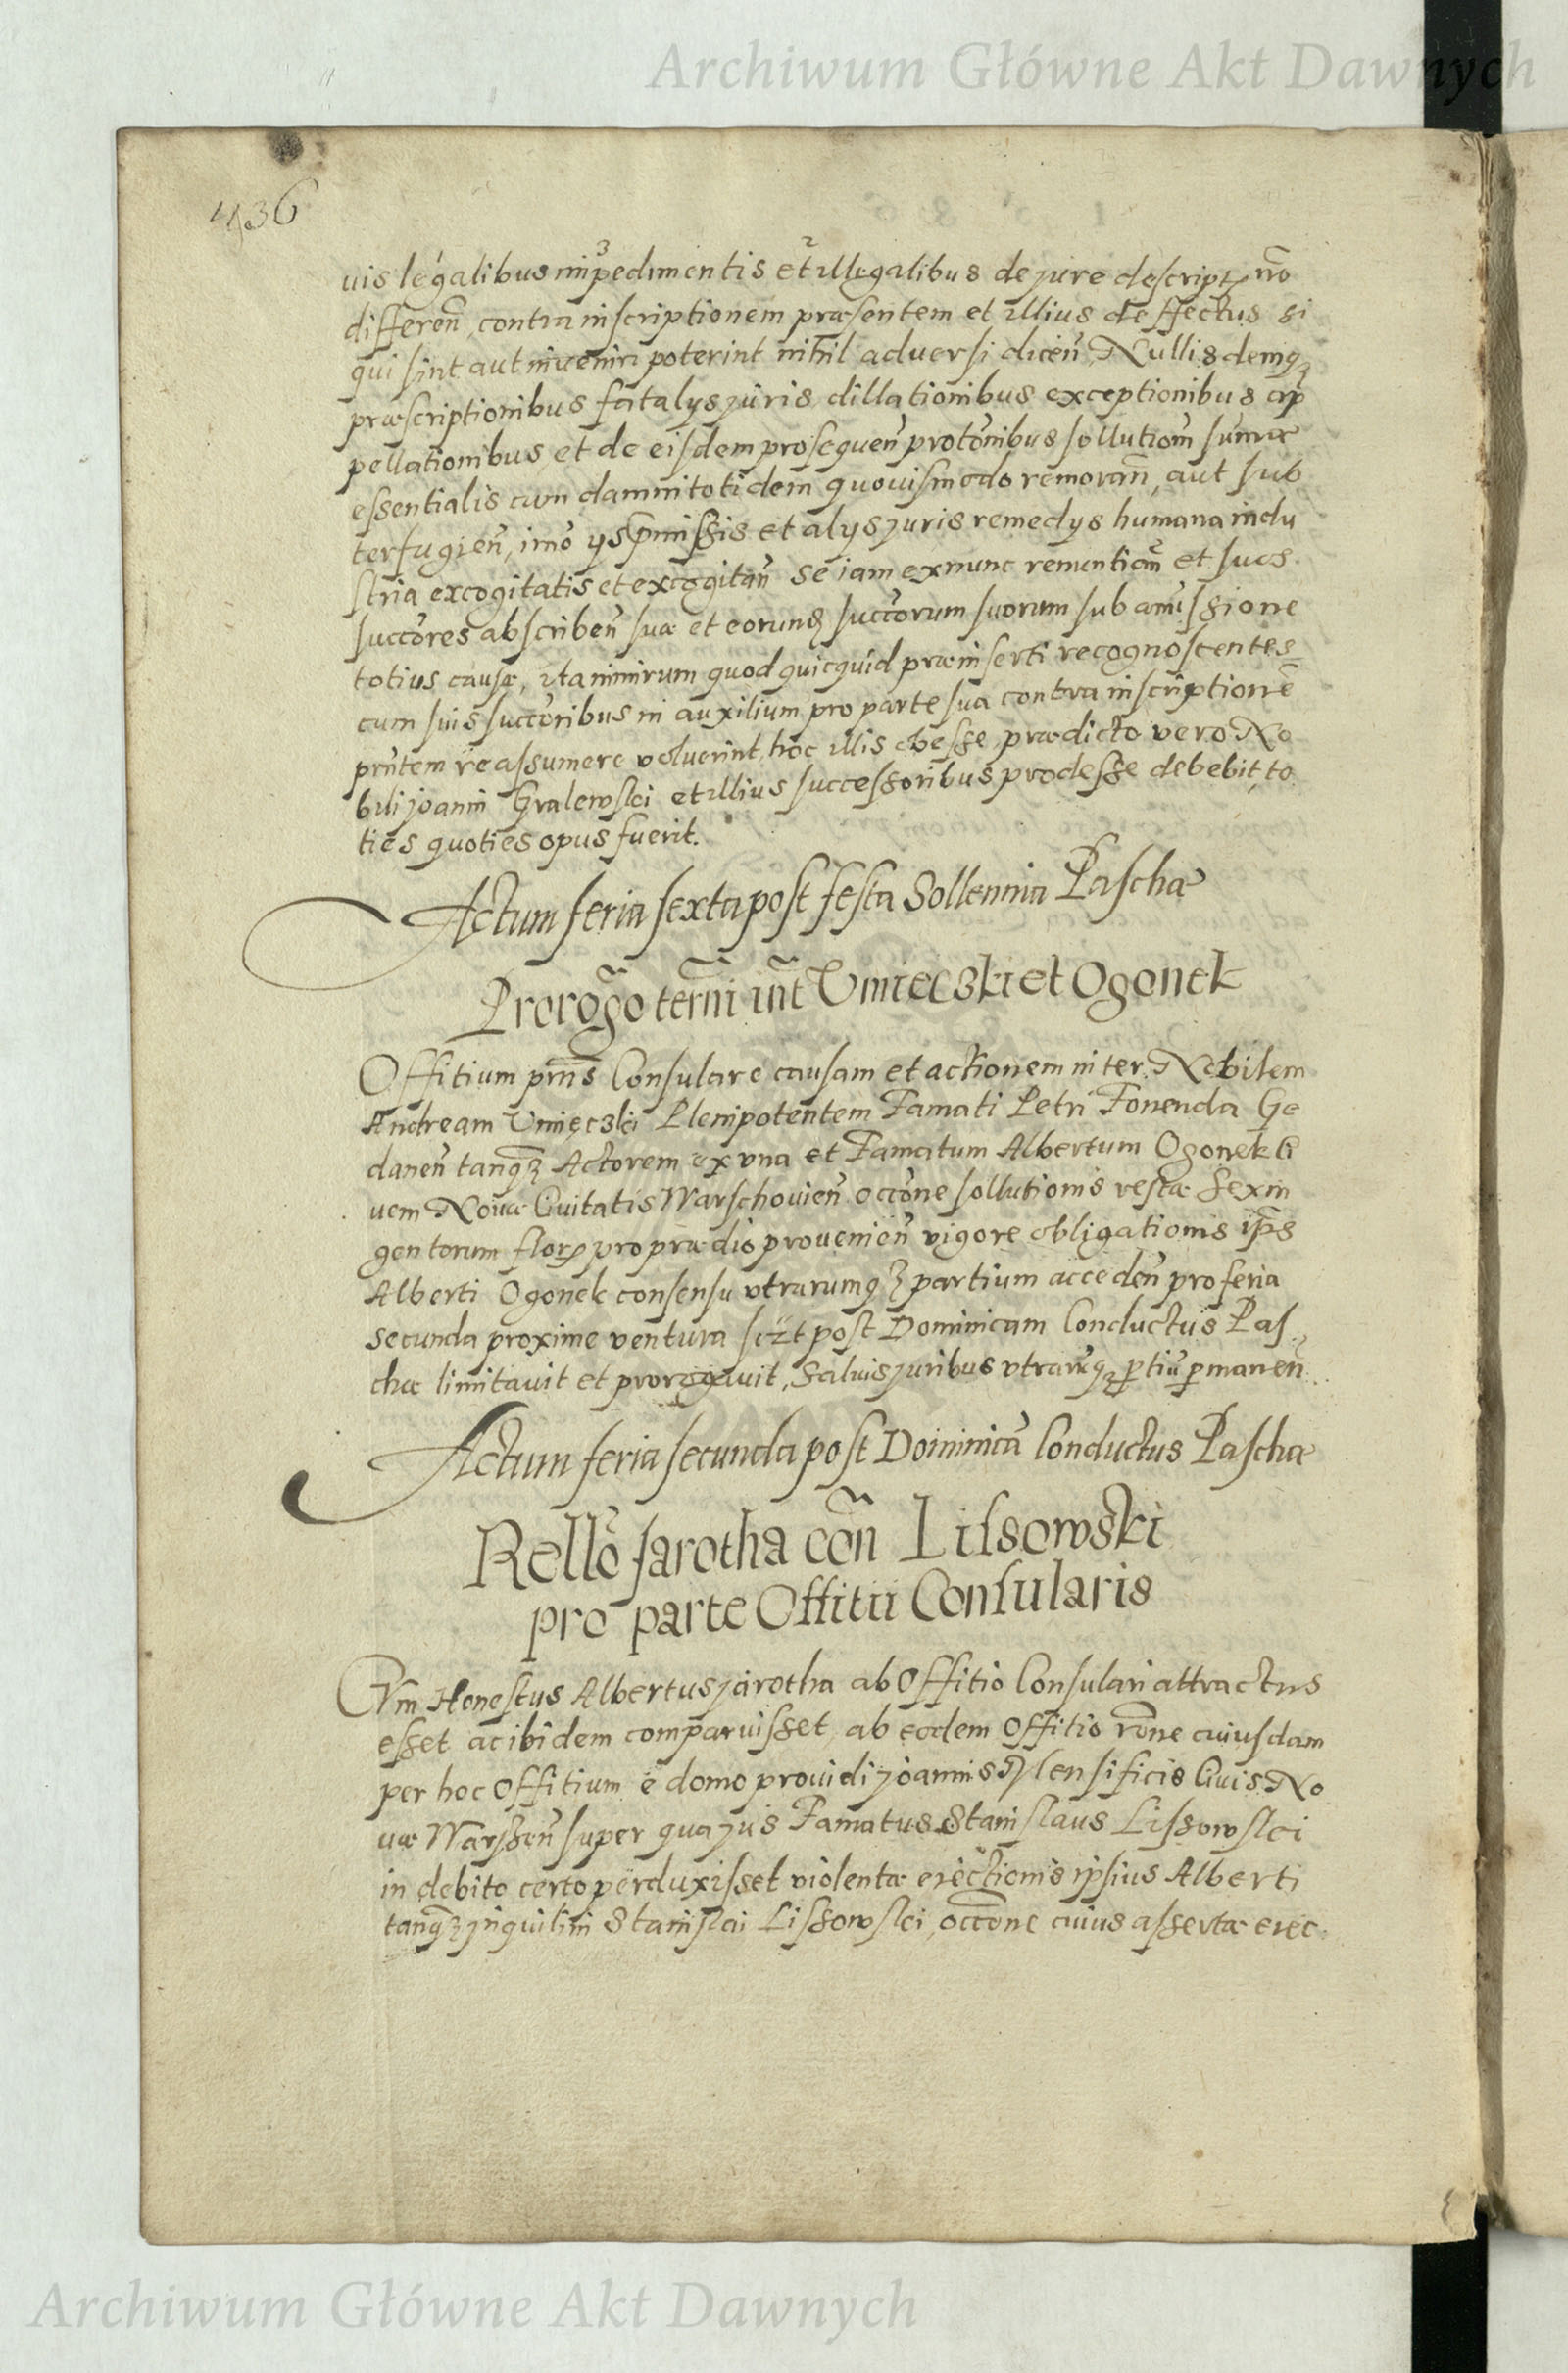 Archiwum Główne Akt Dawnych
436
uis legalibus impedimentis et illegalibus de jure descript. no͂
differen̄, contra inscriptionem præsentem et illius deffectus si
qui sint aut inveniri poterint nihil adversi dicen̄ Nullis demq3
præscriptionibus fatalys juris dillationibus exceptionibus ap
pellationibus et de eisdem prosequen̄ prot͂onibus sollution̄ sum̄æ
essentialis cum damni totidem quovismodo remoran̄, aut sub
terfugien̄, imo ys p̄missis et alys juris remedys humana indu
stria excogitatis et excogitan̄ se iam exnunc renuntian̄ et suos
succ͂ores abscriben̄ suæ et eorund succ͂orum suorum sub amissione
totius causæ, ita nimirum quod quicquid præinserti recognoscentes
cum suis succ͂oribus in auxilium pro parte sua contra inscriptione͂
pr̄ntem reassumere voluerint, hoc illis obesse, prædicto vero No
bili joanni Gralewski et illius successoribus prodesse debebit, to
ties quoties opus fuerit.
Actum feria sexta post festa Sollennia Paschæ
Prorog͂o term͂i int͂ Umięczki et Ogonek
Offitium pr̄ns Consulare causam et actionem inter Nobilem
Andream Umięczki Plenipotentem Famati Petri Fonenda Ge
danen̄ tanq̄3 Actorem ex una et Famatum Albertum Ogonek ci
uem Novæ Civitatis Warschovien̄ occ͂one sollutionis restæ sexin
gentorum flor. pro prædio provenien̄ vigore obligationis ip̄s
Alberti Ogonek consensu utrarumq3 partium acceden̄ pro feria
secunda proxime ventura sc͂zt post Dominicam Conductus Pas
chæ limitavit et prorogavit, salvis juribus utrar̄q3 ptiu͂ pmanen̄.
Actum feria secunda post Dominica͂ Conductus Paschæ
Rell͂o Jarotha con̄ Lissowski
pro parte Offitii Consularis
Cum Honestus Albertus jarotha ab Offitio Consulari attractus
esset ac ibidem comparuisset, ab eodem Offitio ro͂ne cuiusdam
per hoc Offitium e domo providi joannis Ylensificis Civis No
væ Warssen̄ super qua jus Famatus Stanislaus Lissowski
in debito certo perduxisset violentæ eiectionis ipsius Alberti
tanq̄3 inquilini Stanislai Lissowski, occ͂one cuius assertæ eiec
Archiwum Główne Akt Dawnych